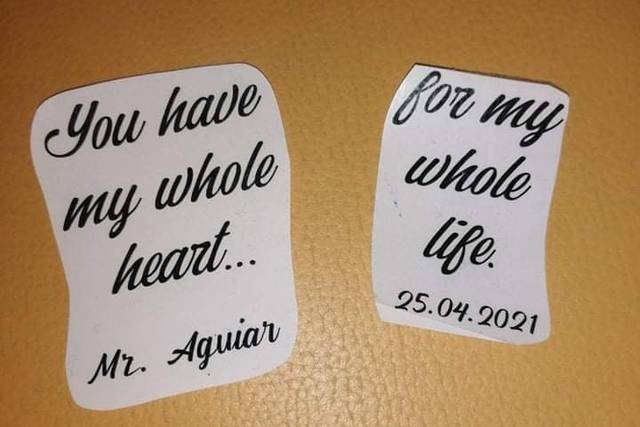 You have
my whole
heart...
Mr. Aguiar
for my
whole
life.
25.04.2021